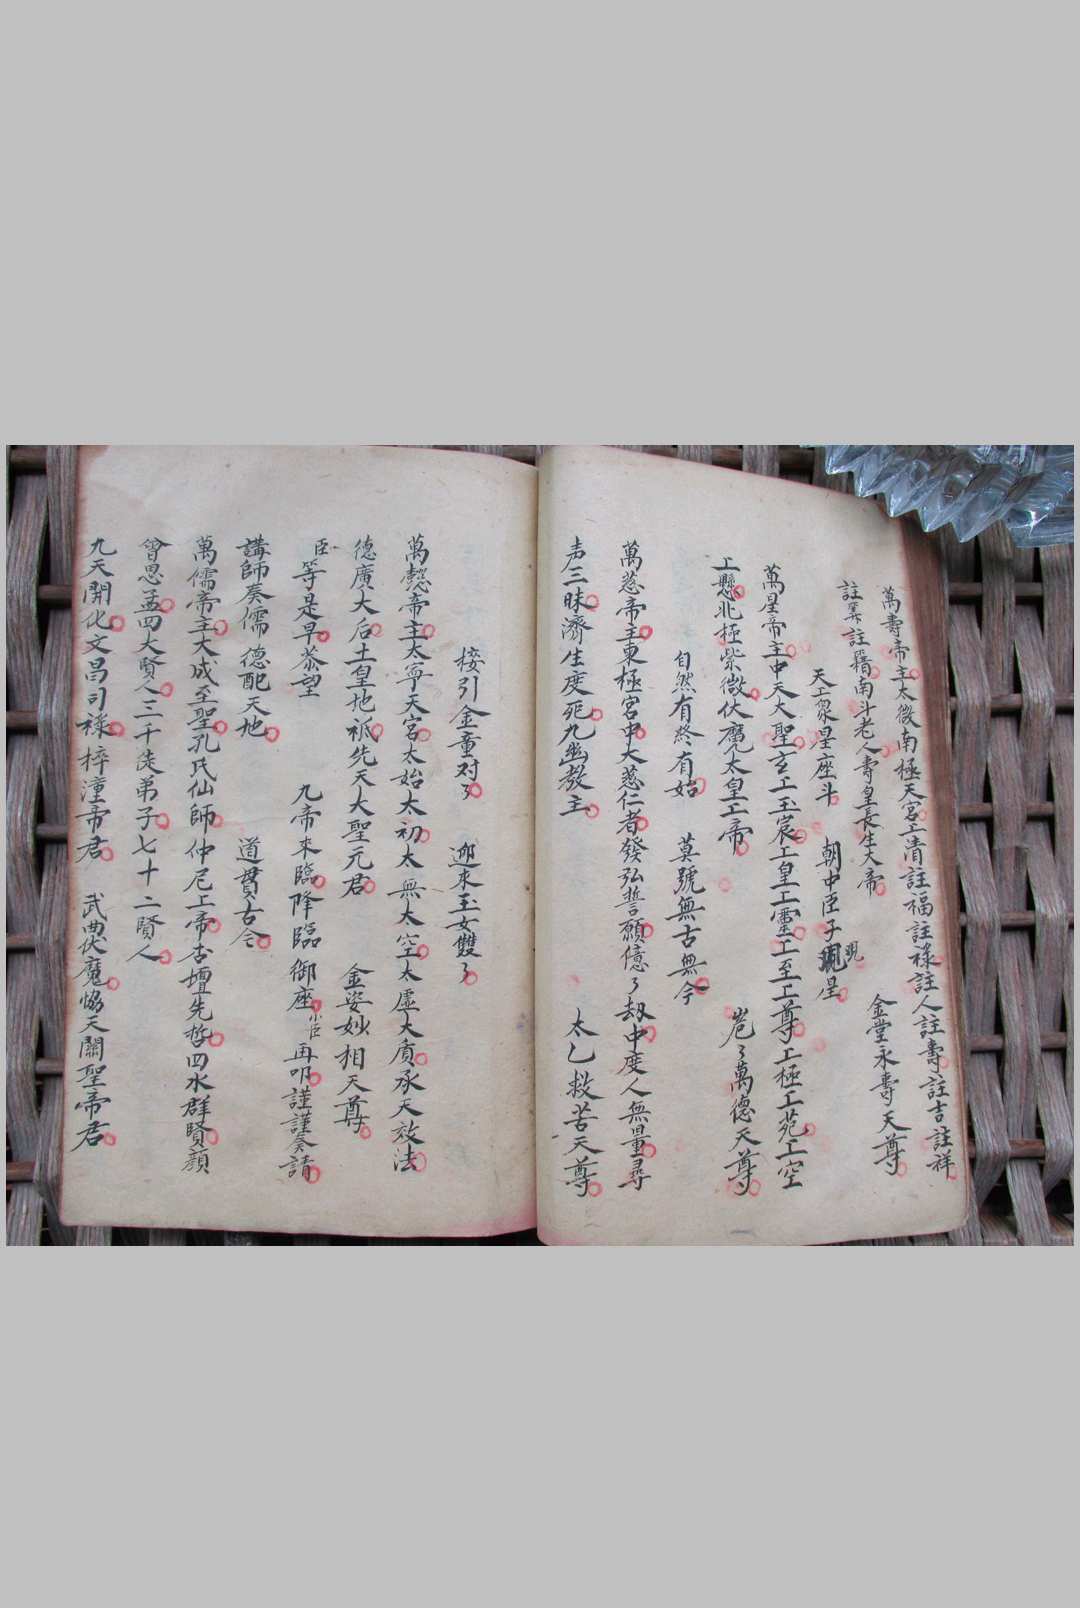 萬壽帝主太微南極天宮上清註福註祿註人註壽註吉註祥
註籍南斗老人壽皇長生大帝 金堂永壽天尊
天上眾星座斗 朝中臣子現星
萬星帝主中天大聖玄上玉宸上皇上靈上至上尊上極上苑上空
上懸北極紫微伏魔太皇上帝 萬德天尊
自然有終有始 莫號無古無今
萬慈帝主東極宮中大慈仁者發弘誓願億々劫中度人無量尋
声三昧濟生度死九幽教主 太乙救苦天尊
接引金童对々 迎來玉女雙々
萬懿帝主太寧天宮太始太初太無太空太虛大質承天效法
德廣大后土皇地祇先天大聖元君 金姿妙相天尊
臣等是早恭望 九帝來臨降臨御座小臣再叩謹謹奏請
講師奏儒 德配天地 道貫古今
萬儒帝主大成至聖孔氏仙師仲尼上帝杏壇先哲四水群賢顏
曾思孟四大賢人三千徒弟子七十二賢人
九天開化文昌司祿梓潼帝君 武曲伏魔協天關聖帝君